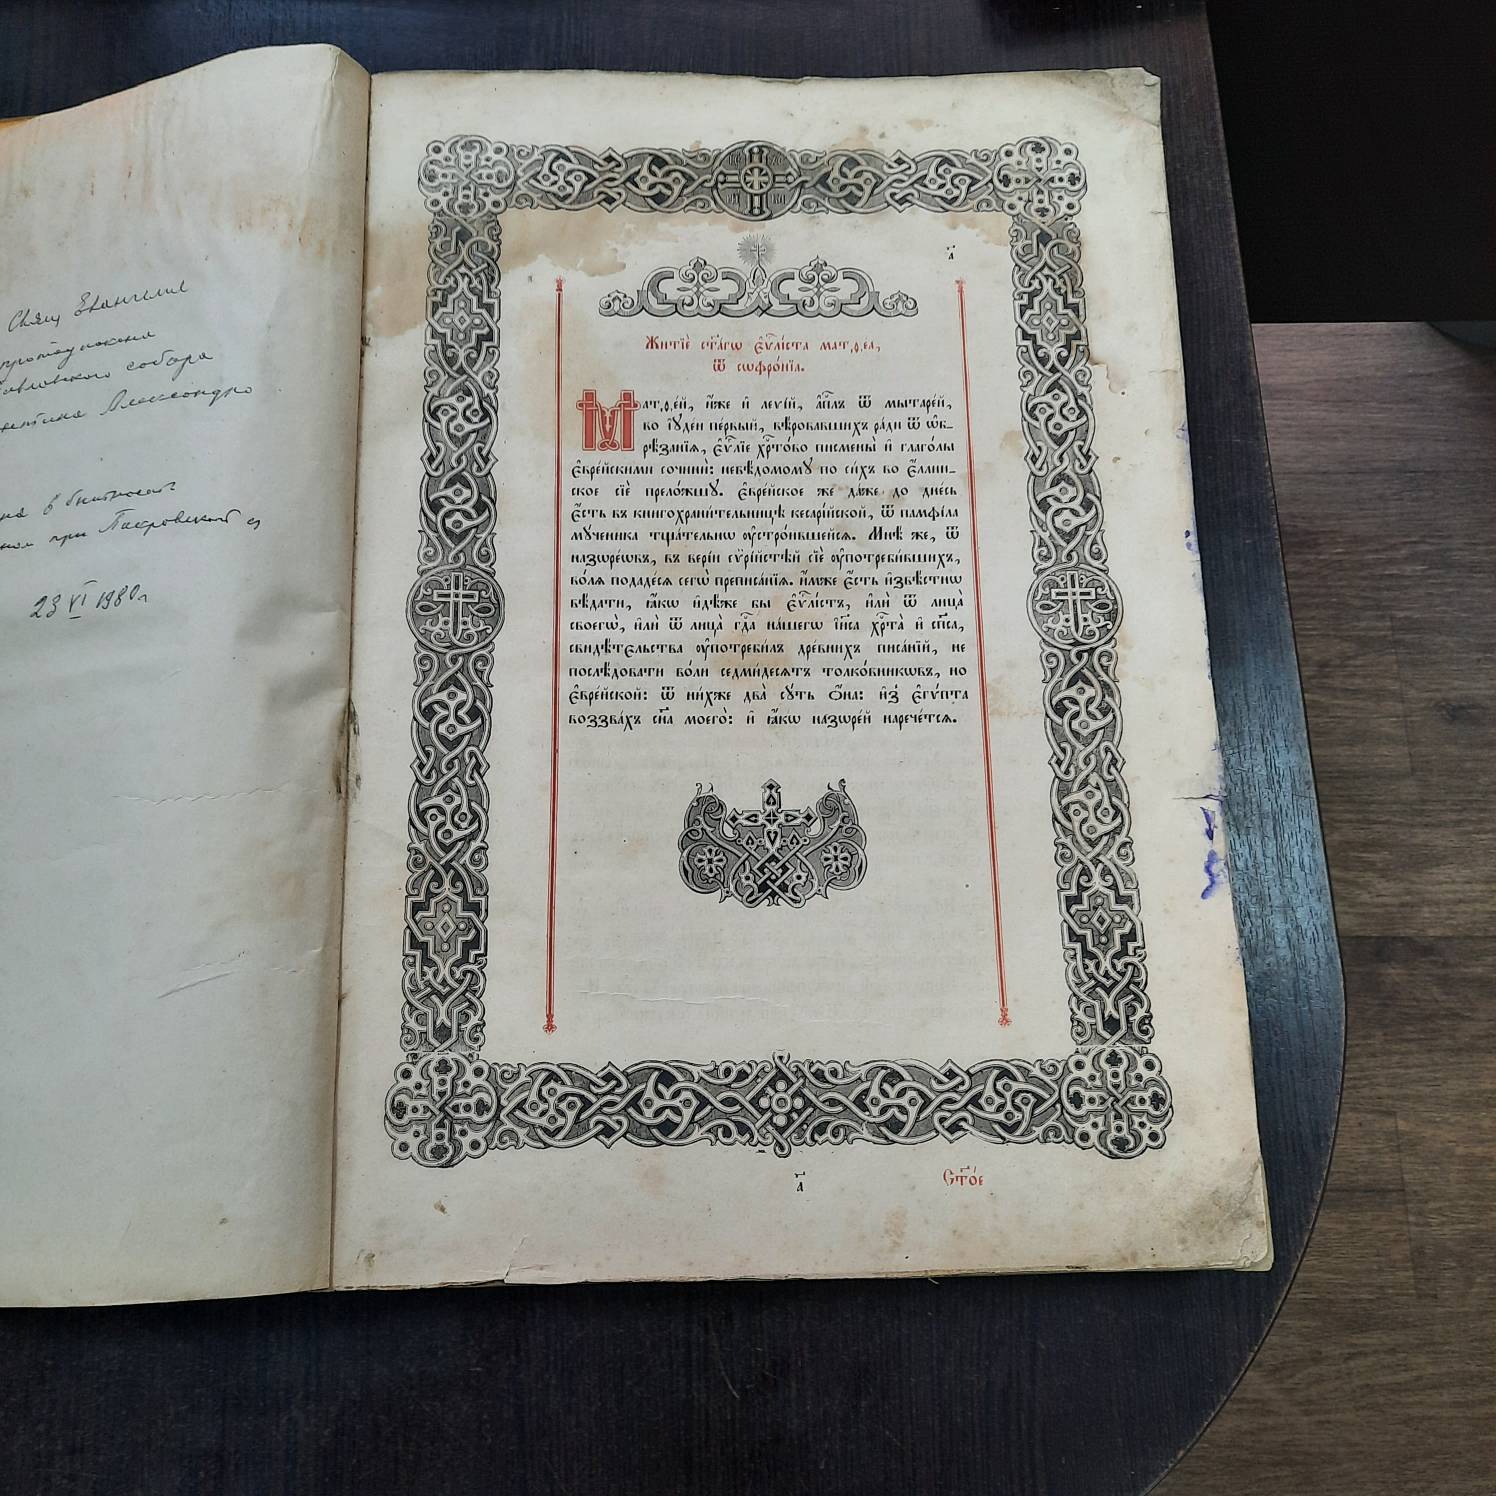 Свящ Евангелие
протодиакона
собора
Александро
на в
ном при Покровской
23 VI 1980г
а҃
Житїѐ ст҃а́гѡ є҆ѵⷢ҇лі́ста матѳе́а,
ѿ сѡфро́нїа.
Матѳе́й, и҆́же и҆ леѵі́й, а҆пⷭ҇лъ ѿ мытаре́й,
во і҆ꙋде́и пе́рвый, вѣ́ровавшихъ ра́ди ѿ ѡ҆б-
рѣ́занїѧ, є҆ѵⷢ҇лїе хрⷭ҇то́во писмены̀ и҆ глаго́лы
є҆вре́йскими сочинѝ: невѣ́домомꙋ по си́хъ во є҆́ллин-
ское сїѐ прело́жшꙋ. є҆вре́йское же да́же до дне́сь
є҆́сть въ книгохрани́тельницѣ кесарі́йской, ѿ памфі́ла
мꙋ́ченика тща́тельнѡ ᲂу҆стро́ившейсѧ. Мнѣ́ же, ѿ
назѡре́ѡвъ, въ вері́и сѵрі́йстѣй сїѐ ᲂу҆потреби́вшихъ,
во́лѧ подаде́сѧ сегѡ̀ преписа́нїѧ. и҆́мже є҆́сть и҆звѣ́стнѡ
вѣ́дати, ꙗ҆́кѡ и҆дѣ́же бы є҆ѵⷢ҇лі́стъ, и҆лѝ ѿ лица̀
своегѡ̀, и҆лѝ ѿ лица̀ гдⷭ҇а на́шегѡ і҆и҃са хрⷭ҇та̀ и҆ сп҃са,
свидѣ́тельства ᲂу҆потреби́лъ дре́внихъ писа́нїй, не
послѣ́довати во́ли седми́десѧтъ толко́вникѡвъ, но
є҆вре́йской: ѿ ни́хже два̀ сꙋ́ть ѻ҆́на: и҆з̾ є҆гѵ́пта
воззва́хъ сн҃а моего̀: и҆ ꙗ҆́кѡ назѡре́й нарече́тсѧ.
а҃
Ст҃о́е